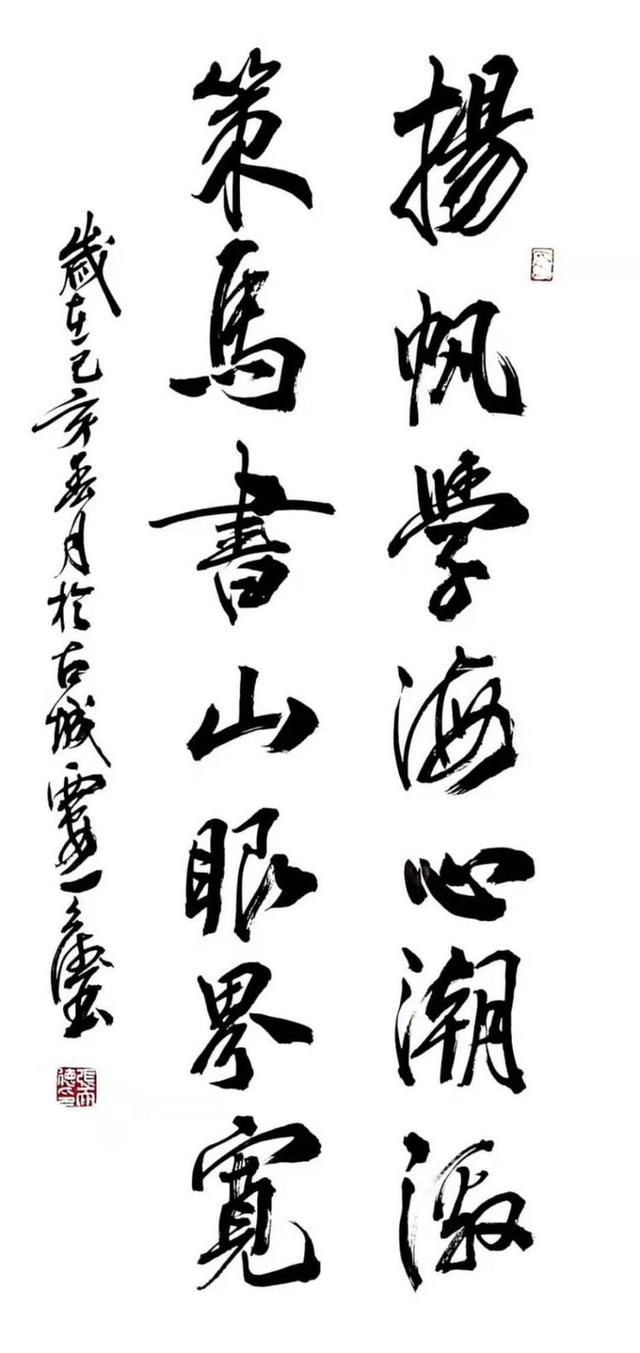 揚帆學海心潮激
策馬書山眼界寬
歲在己亥冬月於古城